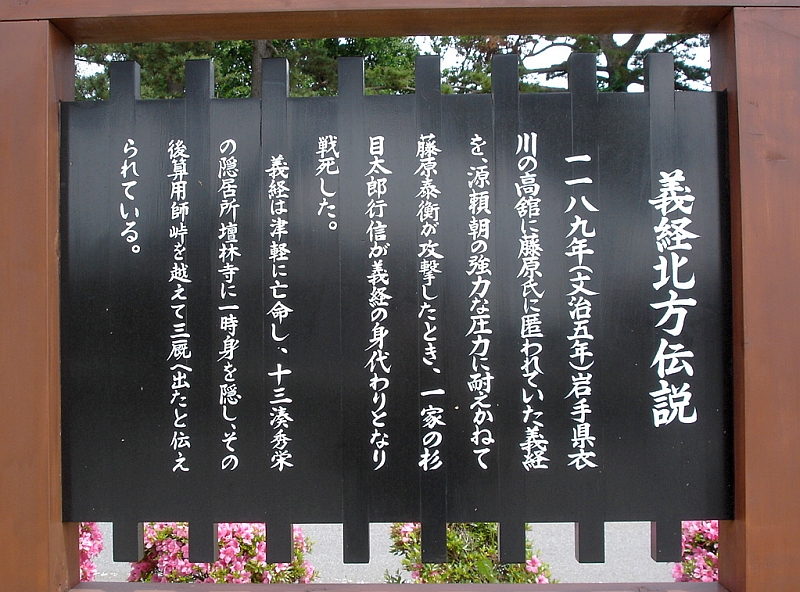 義経北方伝説
一一八九年（文治五年）岩手県衣
川の高舘に藤原氏に匿われていた義経
を、源頼朝の強力な圧力に耐えかねて
藤原泰衡が攻撃したとき、一家の杉
目太郎行信が義経の身代わりとなり
戦死した。
義経は津軽に亡命し、十三湊秀栄
の隠居所壇林寺に一時身を隠し、その
後算用師峠を越えて三厩へ出たと伝え
られている。